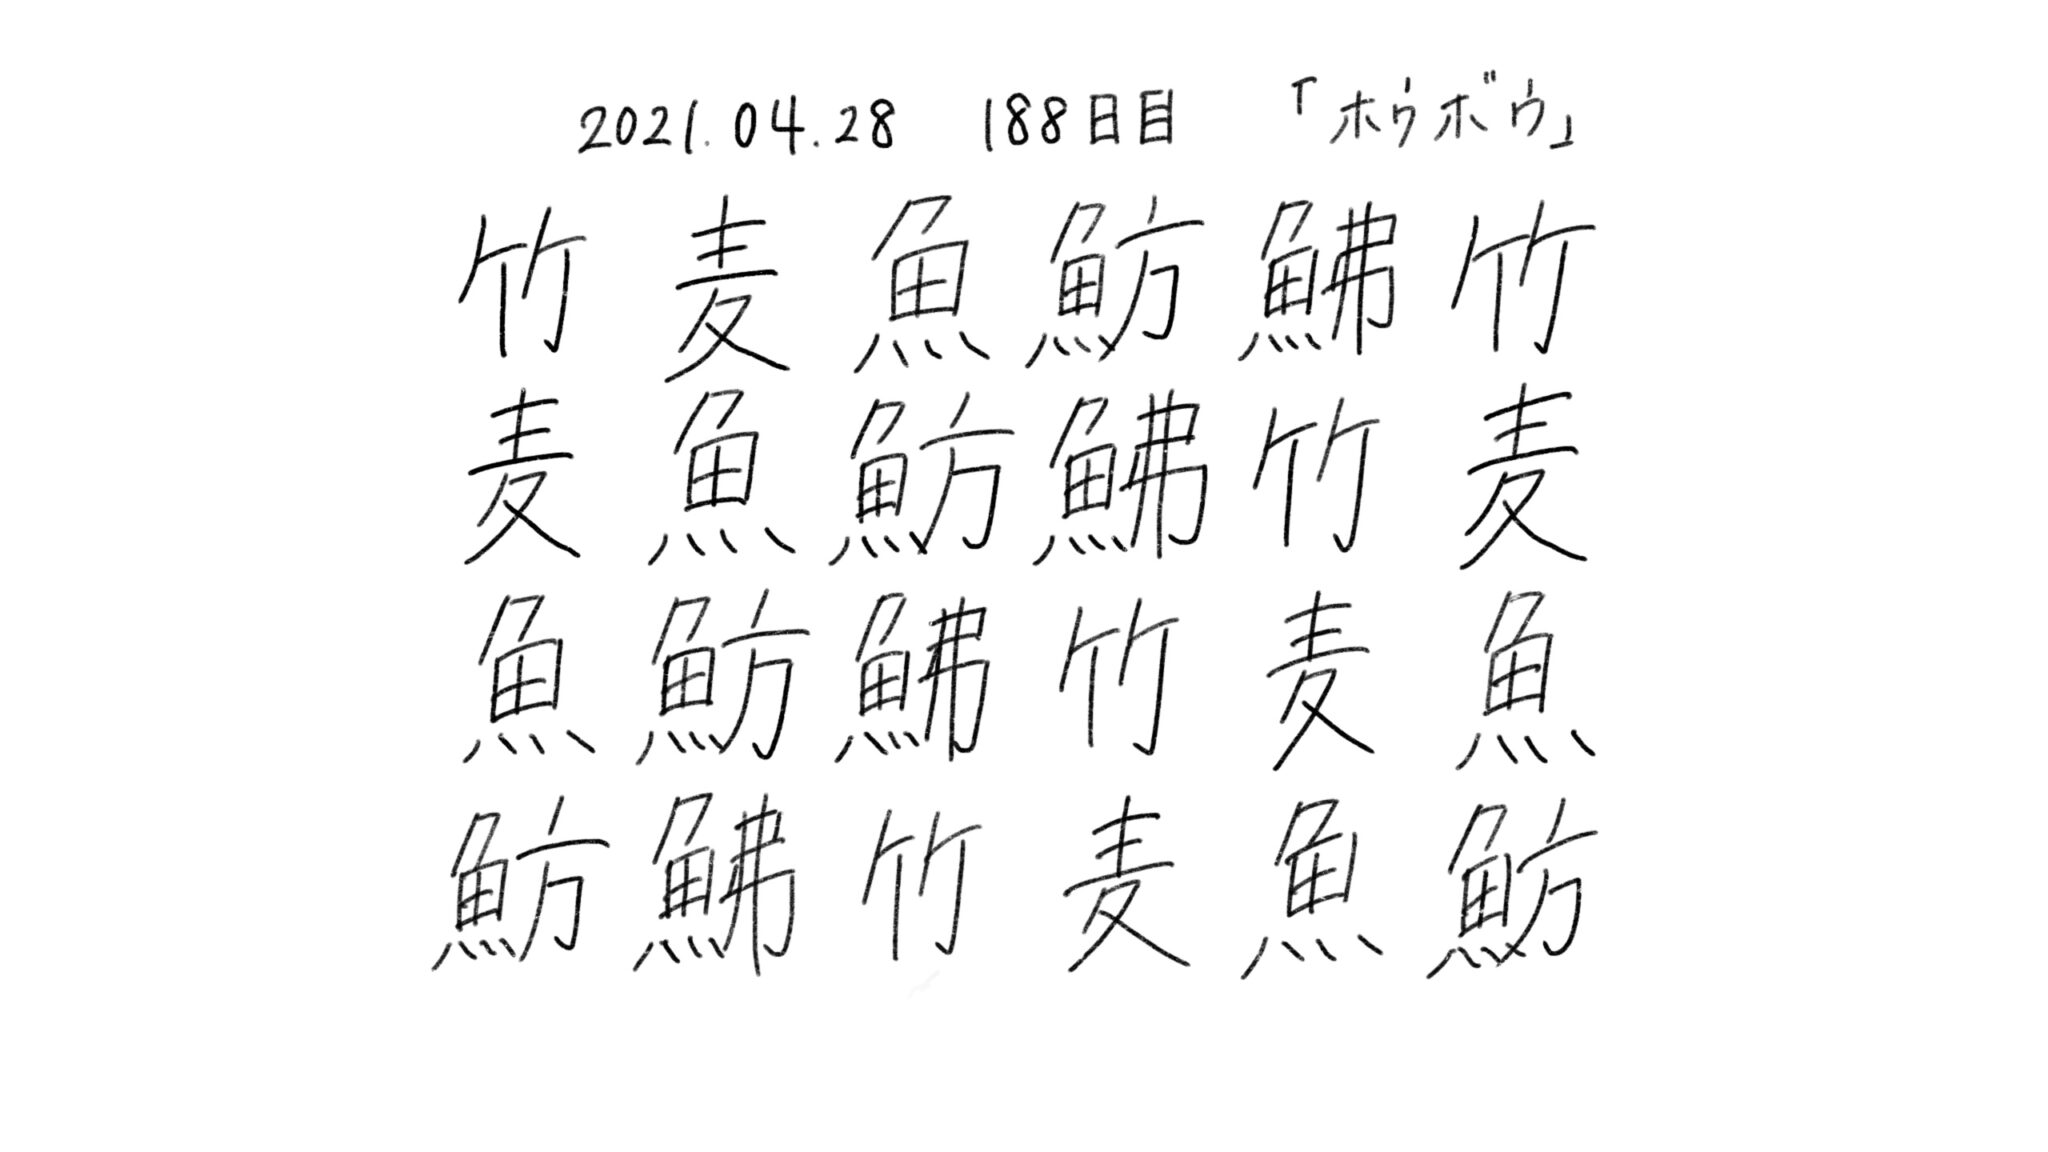 2021.04.28 188日目 「ホウボウ」
竹麦魚魴鮄竹
麦魚魴鮄竹麦
魚魴鮄竹麦魚
魴鮄竹麦魚魴